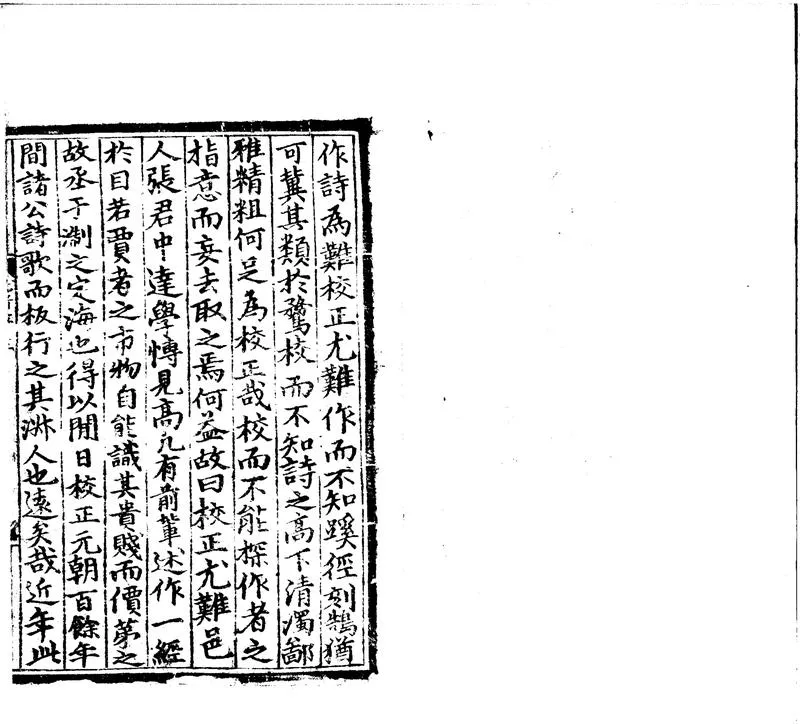 作詩為難校正尤難作而不知蹊徑刻鵠猶
可冀其類於鶩校而不知詩之高下清濁鄙
雅精粗何足為校正哉校而不能探作者之
指意而妄去取之焉何益故曰校正尤難邑
人張君中達學愽見高凡有前輩述作一經
於目若賈者之市物自能識其貴賤而價苐之
故丞于淛之定海也得以閒日校正元朝百餘年
間諸公詩歌而板行之其淑人也遠矣哉近年此